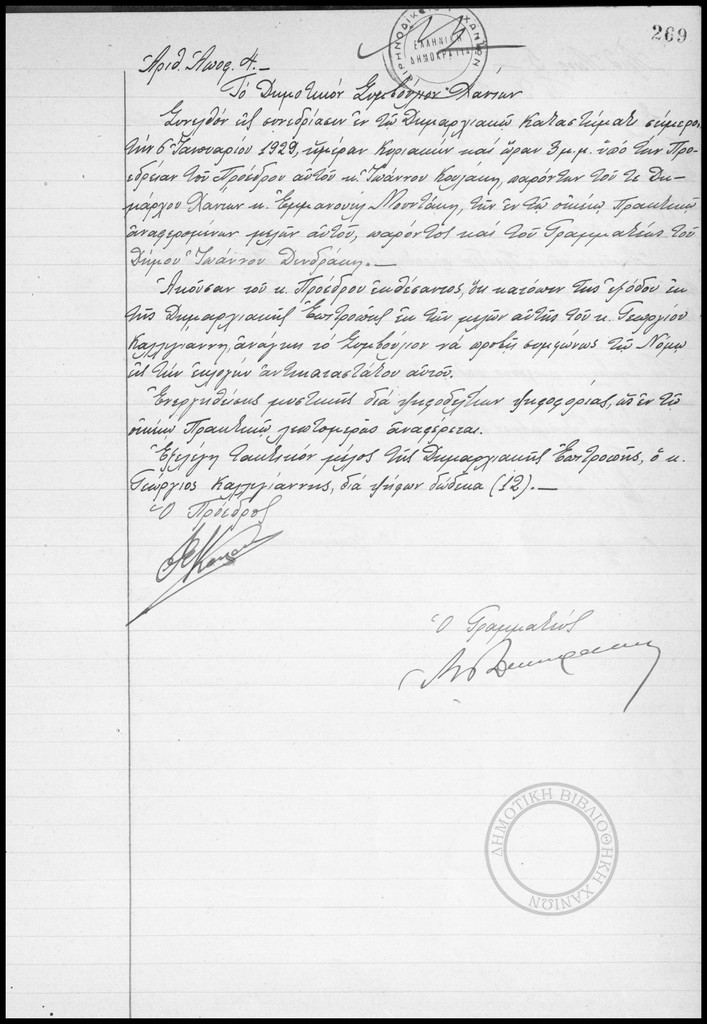 269
ΕΙΡΗΝΟΔΙΚΕΙΟΝ ΧΑΝΙΩΝ
ΕΛΛΗΝΙΚΗ
ΔΗΜΟΚΡΑΤΙΑ
Ἀριθ. Ἀποφ. 4.—
Τό Δημοτικόν Συμβούλιον Χανίων
Συνελθόν εἰς συνεδρίασιν ἐν τῷ Δημαρχιακῷ Καταστήματι σήμερον
τήν 6 Ἰανουαρίου 1929, ἡμέραν Κυριακήν καί ὥραν 3 μ.μ. ὑπό τήν Προ
εδρείαν τοῦ Προέδρου αὐτοῦ κ. Ἰωάννου Κουλάκη, παρόντων τοῦ τε Δη
μάρχου Χανίων κ. Ἐμμανουήλ Μουντάκη, τῶν ἐν τῷ οἰκείῳ Πρακτικῷ
ἀναφερομένων μελῶν αὐτοῦ, παρόντος καί τοῦ Γραμματέως τοῦ
Δήμου Ἰωάννου Δενδράκη.—
Ἀκοῦσαν τοῦ κ. Προέδρου ἐκθέσαντος, ὅτι κατόπιν τῆς ἐξόδου ἐκ
τῆς Δημαρχιακῆς Ἐπιτροπῆς ἐκ τῶν μελῶν αὐτῆς τοῦ κ. Γεωργίου
Καλλιγιάννη, ἀνάγκη τό Συμβούλιον νά προβῇ συμφώνως τῷ Νόμῳ
εἰς τήν ἐκλογήν ἀντικαταστάτου αὐτοῦ.
Ἐνεργηθείσης μυστικῆς διά ψηφοδελτίων ψηφοφορίας, ὡς ἐν τῷ
οἰκείῳ Πρακτικῷ λεπτομερῶς ἀναφέρεται.
Ἐξελέγη τακτικόν μέλος τῆς Δημαρχιακῆς Ἐπιτροπῆς, ὁ κ.
Γεώργιος Καλλιγιάννης, διά ψήφων δώδεκα (12).—
Ὁ Πρόεδρος
Ὁ Γραμματεύς
ΔΗΜΟΤΙΚΗ ΒΙΒΛΙΟΘΗΚΗ ΧΑΝΙΩΝ